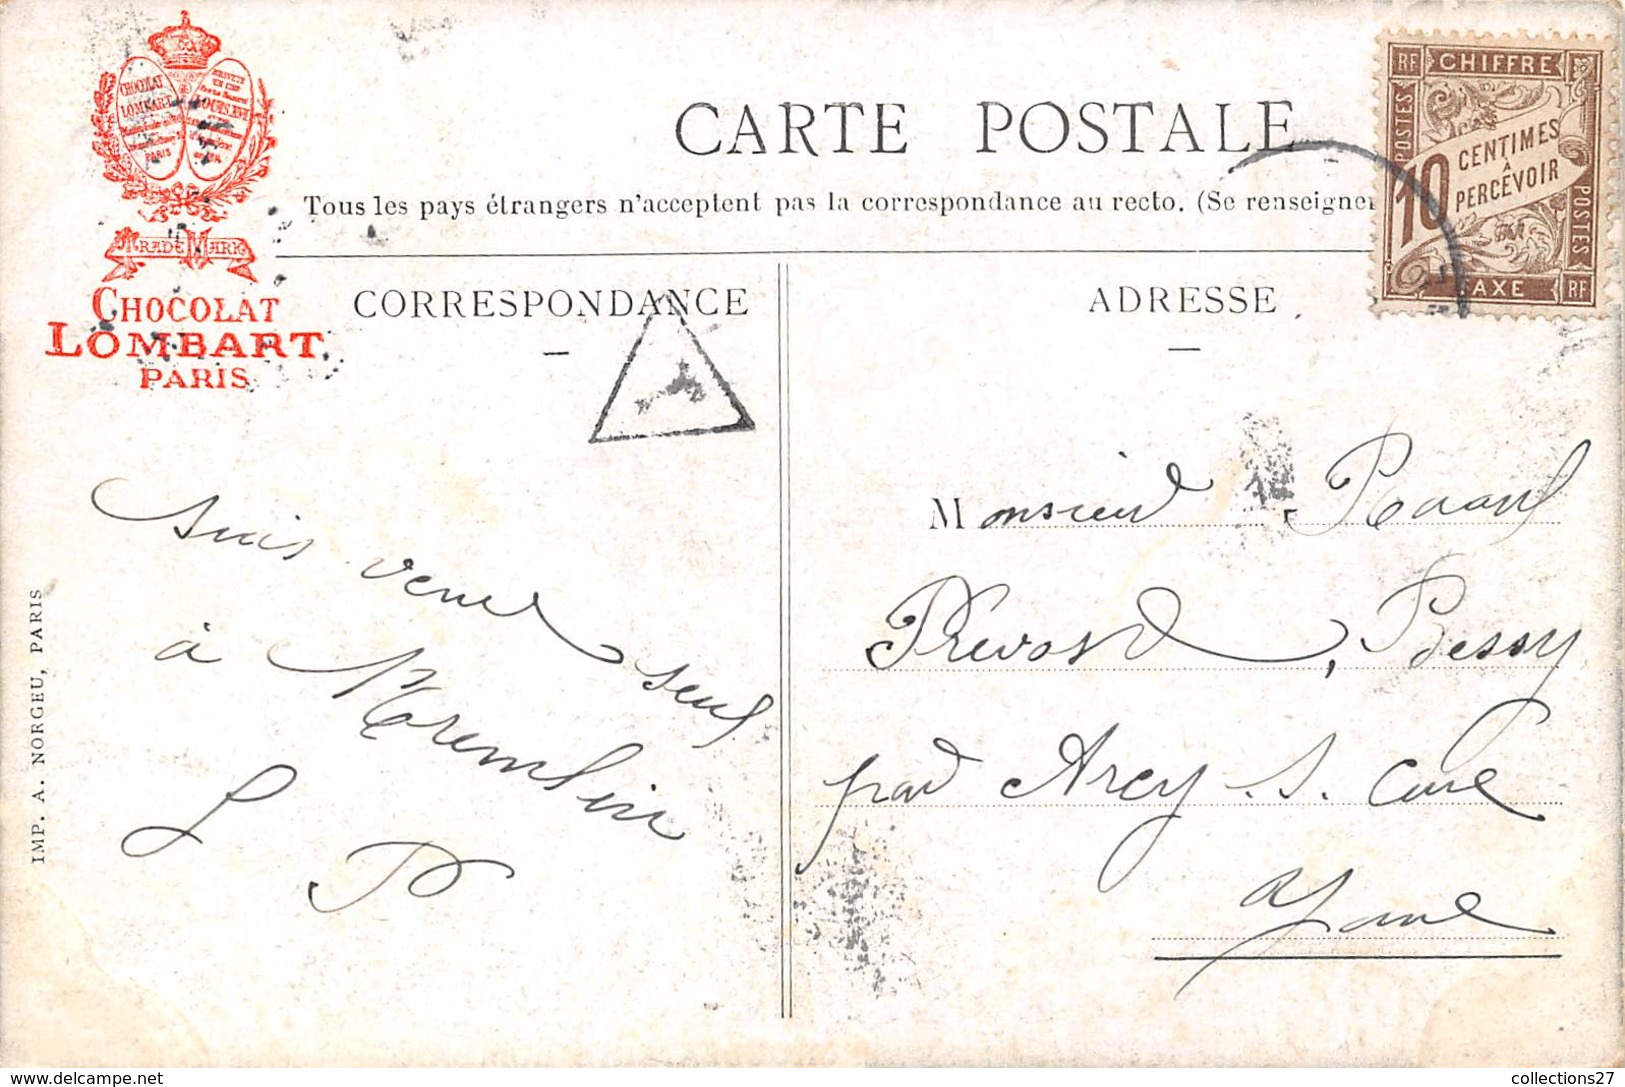 CHOCOLAT
LOMBART
PARIS
LOUIS XVI
TRADE MARK
CHOCOLAT
LOMBART
PARIS
CARTE POSTALE
Tous les pays étrangers n'acceptent pas la correspondance au recto. (Se renseigner
RF CHIFFRE RF
POSTES
10 CENTIMES
À
PERCEVOIR
POSTES
TAXE RF
CORRESPONDANCE
T
suis venu seul
à
L P
IMP. A. NORGEU, PARIS
ADRESSE
Monsieur
Prévost, Bessy
par Arcy s. Cure
Yonne
collections27